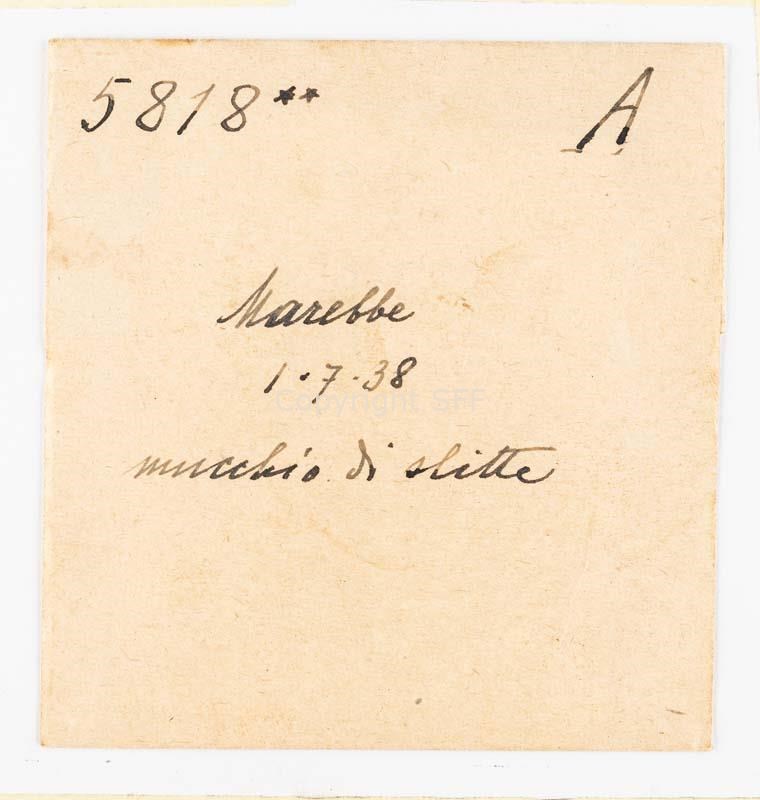 5818** A
Marebbe
1·7·38
Copyright SFF
mucchio di slitte